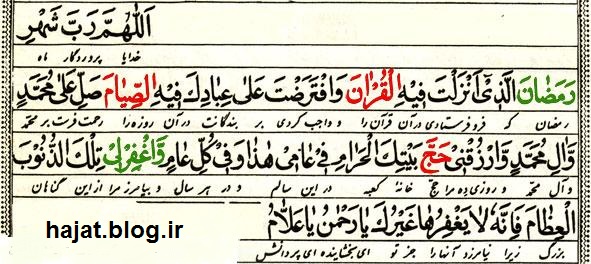 اَللّٰهُمَّ رَبَّ شَهْرِ
خدایا پروردگار ماه
رَمَضٰانَ الَّذِی اَنْزَلْتَ فِیهِ الْقُرْاٰنَ وَافْتَرَضْتَ عَلٰی عِبٰادِكَ فِیهِ الصِّیٰامَ صَلِّ عَلٰی مُحَمَّدٍ
رمضان که فرو فرستادی در آن قرآن را و واجب کردی بر بندگانت در آن روزه را رحمت فرست بر محمد
وَاٰلِ مُحَمَّدٍ وَارْزُقْنِی حَجَّ بَیْتِكَ الْحَرٰامِ فِی عٰامِی هٰذٰا وَفِی كُلِّ عٰامٍ وَاغْفِرْ لِی تِلْكَ الذُّنُوبَ
و آل محمد و روزی ده مرا حج خانه کعبه در این سالم و در هر سال و بیامرز مرا از این گناهان
الْعِظٰامَ فَاِنَّهُ لٰا یَغْفِرُهٰا غَیْرُكَ یٰا رَحْمٰنُ یٰا عَلّٰامُ
بزرگ زیرا نیامرزد آنها را جز تو ای بخشاینده ای پردانش
hajat.blog.ir